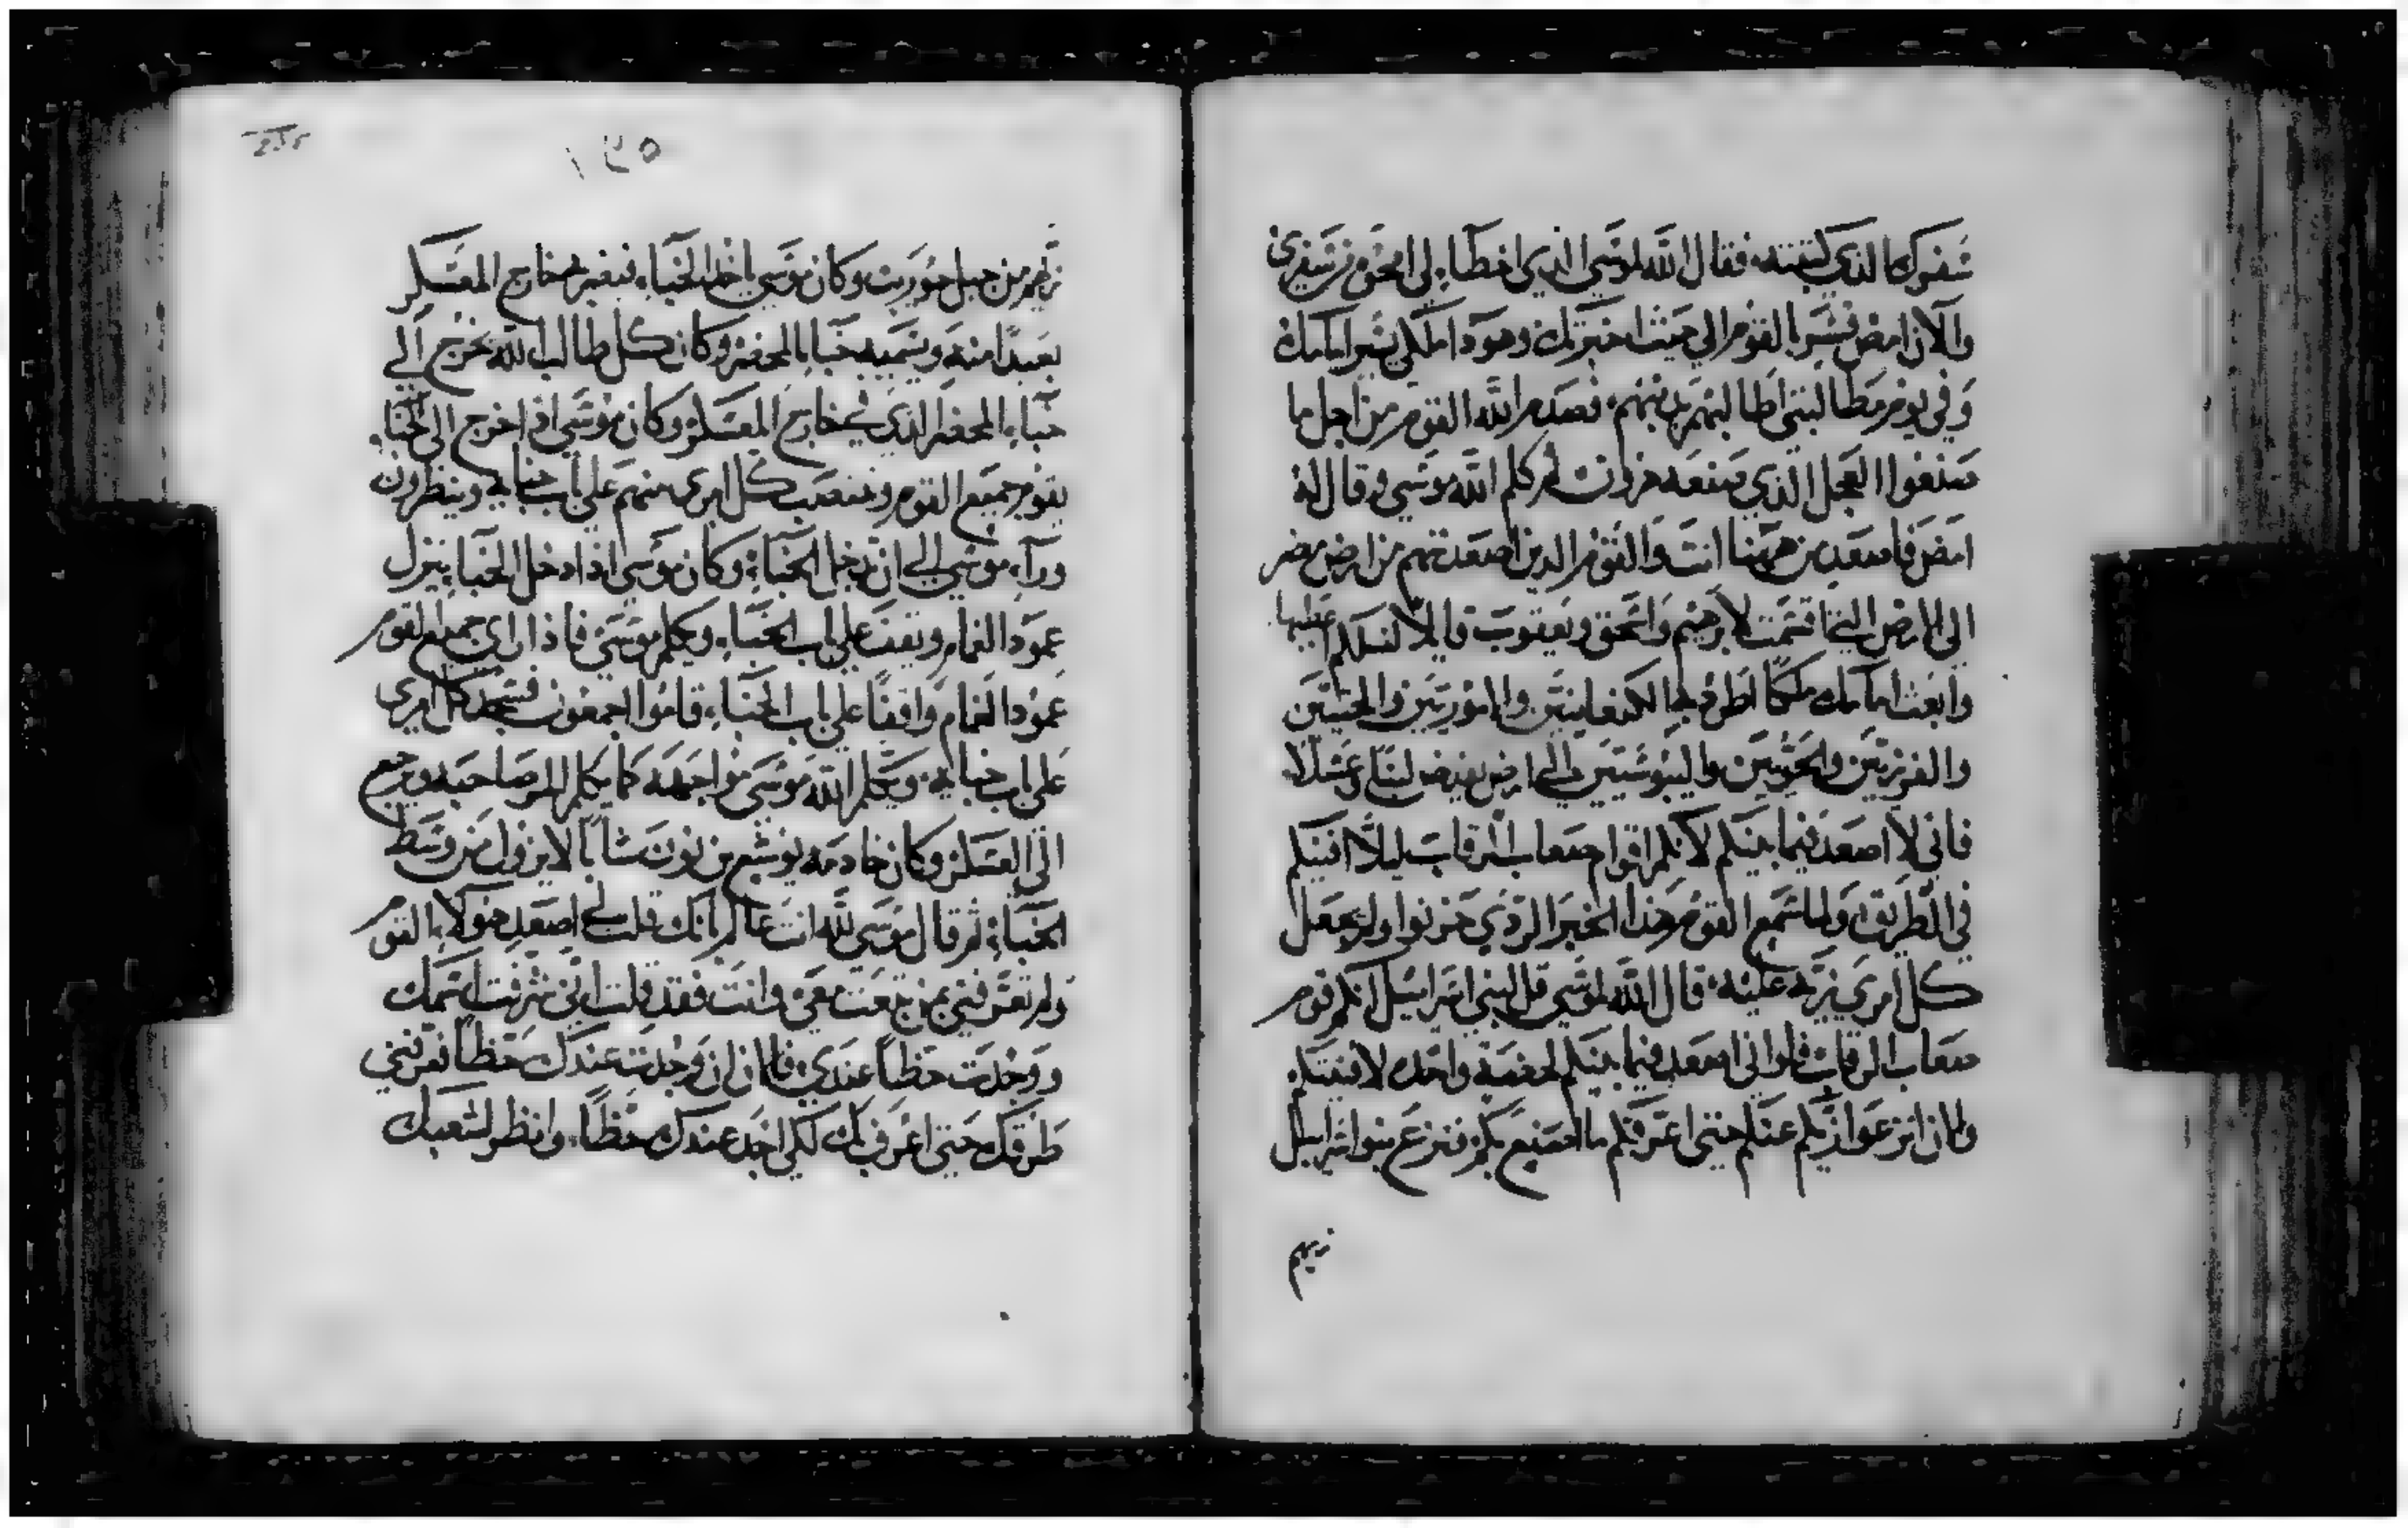 سفرك الذي كتبته فقال الله لموسى الذي اخطاء لي امحوه من سفري
والآن امض فسير بالقوم الى حيث اخبرتك وهوذا ملكي يسير امامك
وفي يوم مطالبتي اطالبهم بذنبهم فصدم الله القوم من اجل ما
صنعوا العجل الذي صنعه هرون ثم كلم الله موسى وقال له
امض فاصعد من ههنا انت والقوم الذين اصعدتهم من ارض مصر
الى الارض التي اقسمت لابرهيم واسحق ويعقوب قايلا لنسلكم اعطيها
وابعث امامك ملكا اطرد بها الكنعانيين والاموريين والحيثيين
والفرزيين والحويين واليبوسيين الى ارض يفيض لبنا وعسلا
فاني لا اصعد فيما بينكم لانكم اقوام صعاب الرقاب ليلا افنيكم
في الطريق ولما سمع القوم هذا الخبر الردي حزنوا ولم يجعل
كل امرى زيه عليه قال الله لموسى قل لبني اسراييل انكم قوم
صعاب الرقاب فلو اني اصعد فيما بينكم لحظة واحده لافنيتكم
والان انزعوا زيكم عنكم حتى اعرفكم ما اصنع بكم فنزع بنوا اسراييل
زيهم
١٣٥
زيهم من جبل حوريب وكان موسى ياخذ الخباء فيضربه خارج المعسكر
بعيدا منه ويسميه خبا المحضر وكان كل طالب الله يخرج الى
خباء المحضر الذي في خارج المعسكر وكان موسى اذا خرج الى الخباء
يقوم جميع القوم وينتصب كل امرى منهم على باب خبايه وينظرون
وراء موسى الى ان يدخل الخباء وكان موسى اذا دخل الخبا ينزل
عمود الغمام ويقف على باب الخباء ويكلم موسى فاذا راى جميع القوم
عمود الغمام واقفا على باب الخباء قاموا اجمعون فسجد كل امرى
على باب خبايه ويكلم الله موسى مواجهه كما يكلم المر صاحبه ويرجع
الى العسكر وكان خادمه يوشع بن نون شابا لا يزول من وسط
الخباء ثم قال موسى لله انت عالم بانك قلت لي اصعد هولاء القوم
ولم تعرفني بمن تبعث معي وانت فقد قلت اني شرفت اسمك
ووجدت حظا عندي فالان ان وجدت عندك حظا تعرفني
طرقك حتى اعرف بك لكي اجد عندك حظا وانظر لشعبك